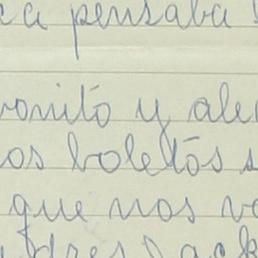 ca pensaba
vonitó y ale
os boletós s
que nos vo